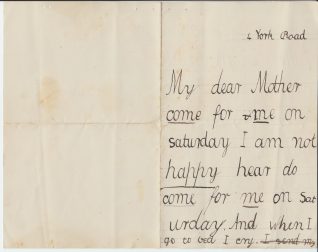 4 York Road
My dear Mother
come for me on
saturday I am not
happy hear do
come for me on Sat
urday. And when I
go to bed I cry. I send my